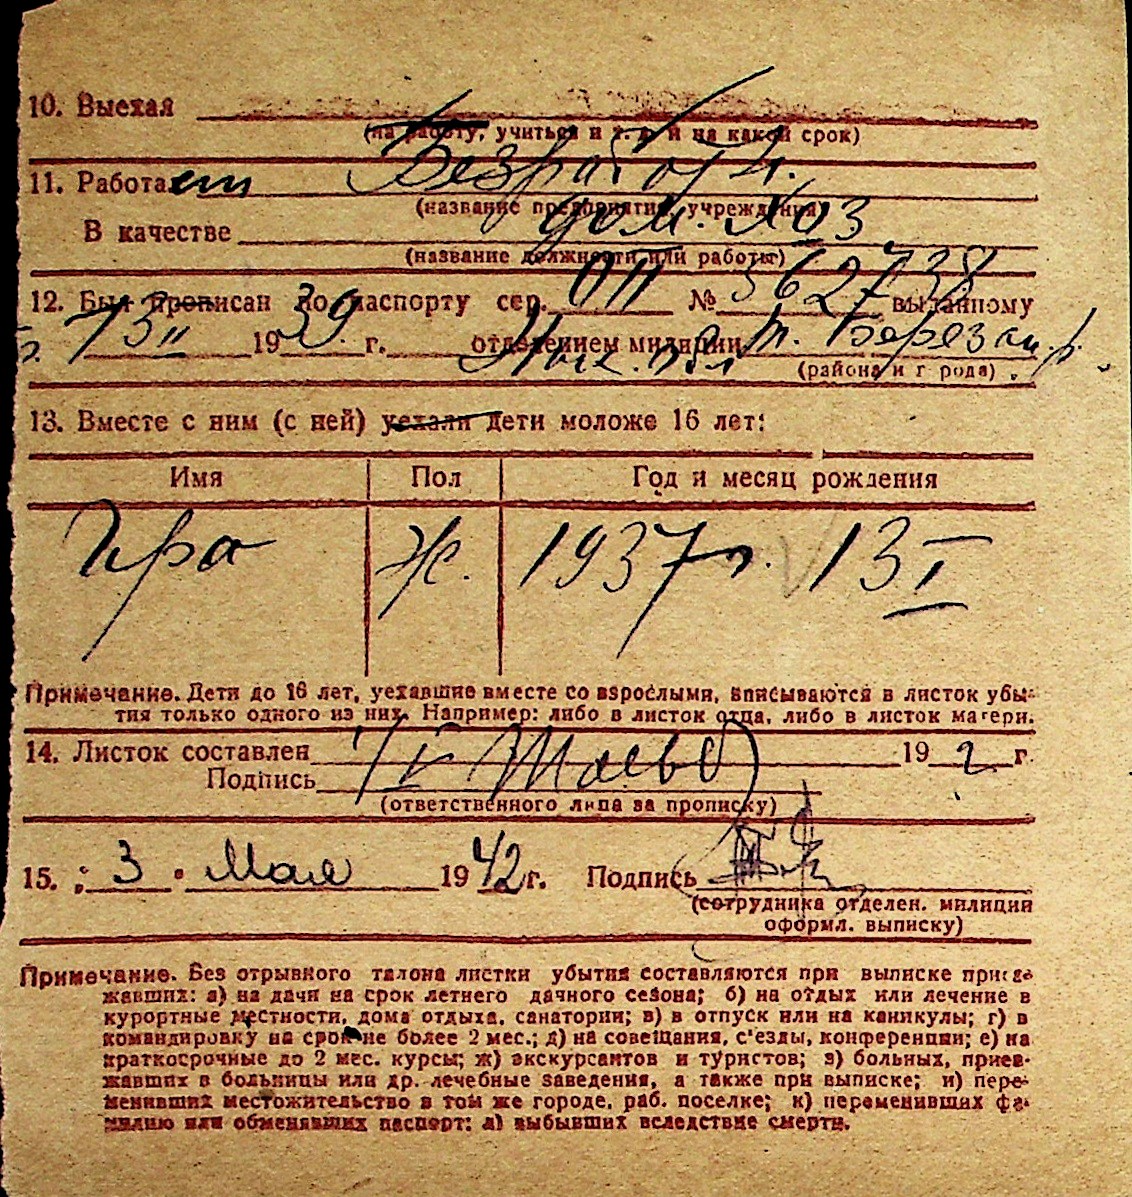 10. Выехал
(на работу, учиться и т. д. и на какой срок)
11. Работает Безработн.
(название предприятия, учреждения)
В качестве дом. хоз
(название должности или работы)
12. Был прописан по паспорту сер. № 562738 выданному
13 II 1939 г. отделением милиции
(района и города)
13. Вместе с ним (с ней) уехали дети моложе 16 лет:
Имя Пол Год и месяц рождения
Ира ж. 1937 г. 13 I
Примечание. Дети до 16 лет, уехавшие вместе со взрослыми, вписываются в листок убы-
тия только одного из них. Например: либо в листок отца, либо в листок матери.
14. Листок составлен 19 2 г.
Подпись
(ответственного лица за прописку)
15. „3" Мая 1942 г. Подпись
(сотрудника отделен. милиции
оформл. выписку)
Примечание. Без отрывного талона листки убытия составляются при выписке приез-
жавших: а) на дачи на срок летнего дачного сезона; б) на отдых или лечение в
курортные местности, дома отдыха, санатории; в) в отпуск или на каникулы; г) в
командировку на срок не более 2 мес.; д) на совещания, с'езды, конференции; е) на
краткосрочные до 2 мес. курсы; ж) экскурсантов и туристов; з) больных, приез-
жавших в больницы или др. лечебные заведения, а также при выписке; и) пере-
менивших местожительство в том же городе, раб. поселке; к) переменивших фа-
милию или обменявших паспорт; л) выбывших вследствие смерти.